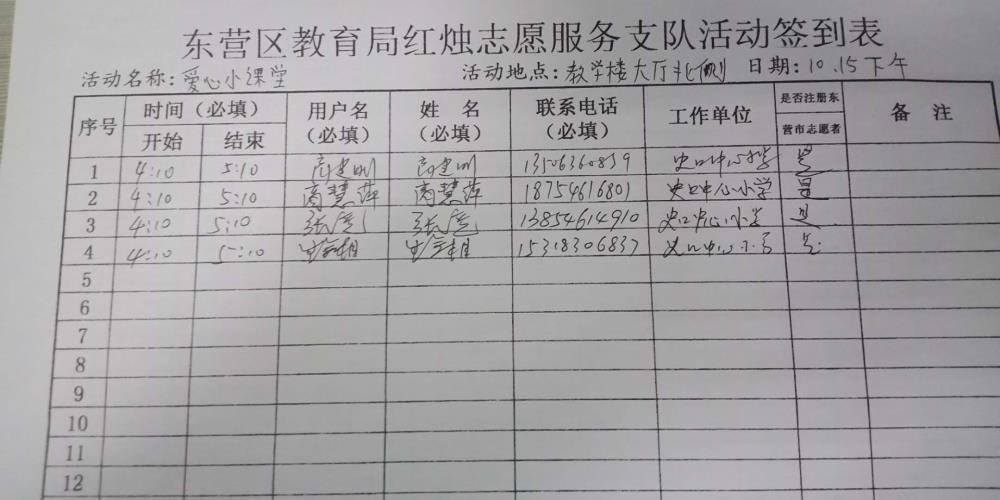 东营区教育局红烛志愿服务支队活动签到表
活动名称：爱心小课堂 活动地点：教学楼大厅北侧 日期：10.15下午
序号 时间（必填） 用户名（必填） 姓名（必填） 联系电话（必填） 工作单位 是否注册东营市志愿者 备注
开始 结束
1 4:10 5:10 13506360839 史口中心小学 是
2 4:10 5:10 商慧萍 商慧萍 18754616801 史口中心小学 是
3 4:10 5:10 13854614910 史口中心小学 是
4 4:10 5:10 15318306837 史口中心小学 是
5
6
7
8
9
10
11
12